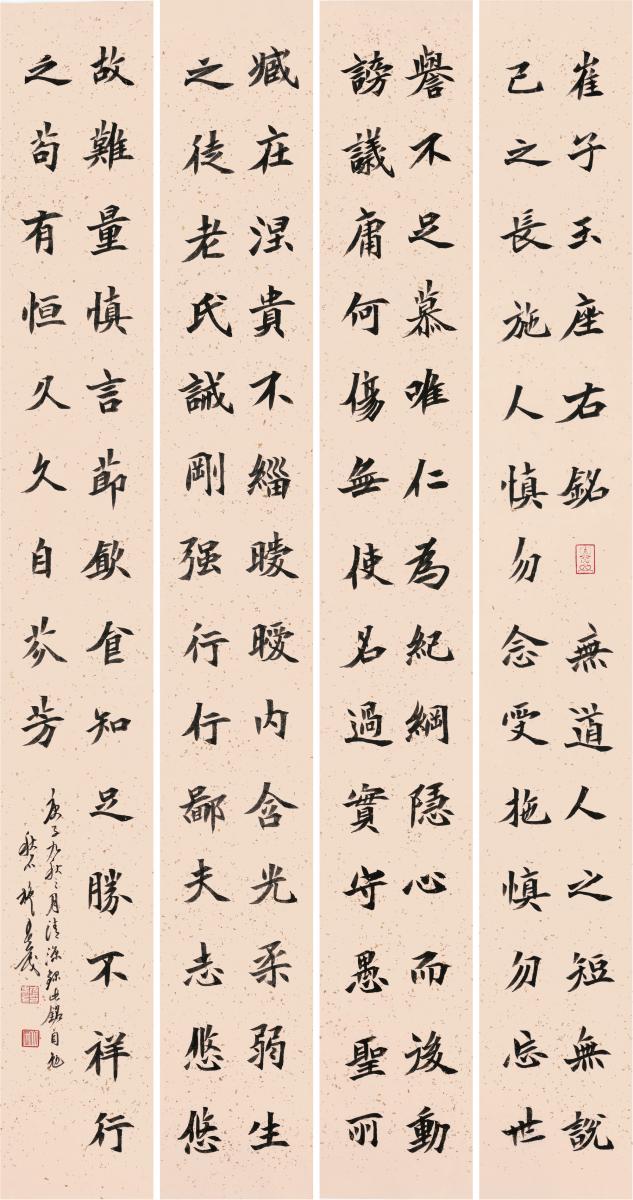 崔子玉座右銘 無道人之短無說
己之長施人慎勿念受施慎勿忘世
譽不足慕唯仁為紀綱隱心而後動
謗議庸何傷無使名過實守愚聖所
臧在涅貴不緇曖曖內含光柔弱生
之徒老氏誡剛强行行鄙夫志悠悠
故難量慎言節飲食知足勝不祥行
之苟有恒久久自芬芳
庚子九秋之月清源錄此銘自勉